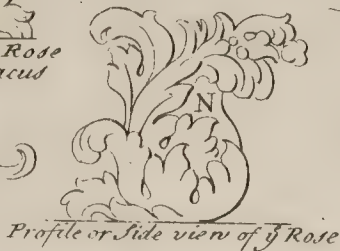 Rose
acus
N
Profile or Side view of yͤ Rose